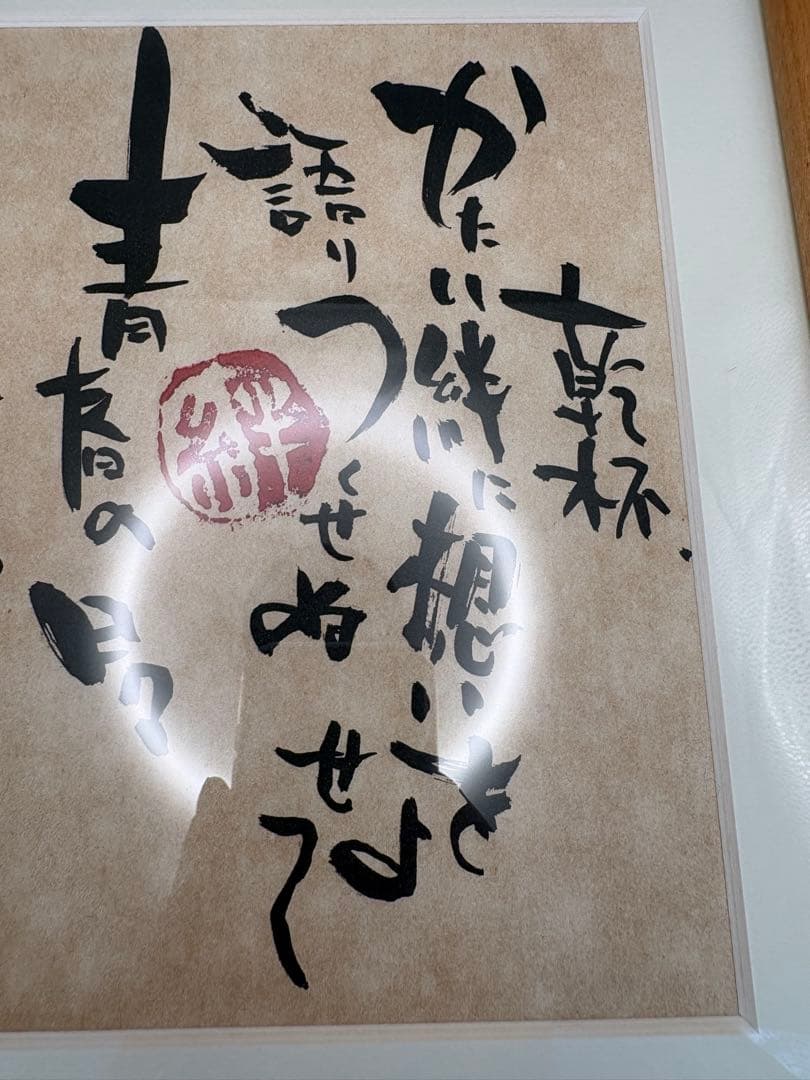 乾杯
かたい絆に想いをよせて
語りつくせぬ
青春の日々
絆